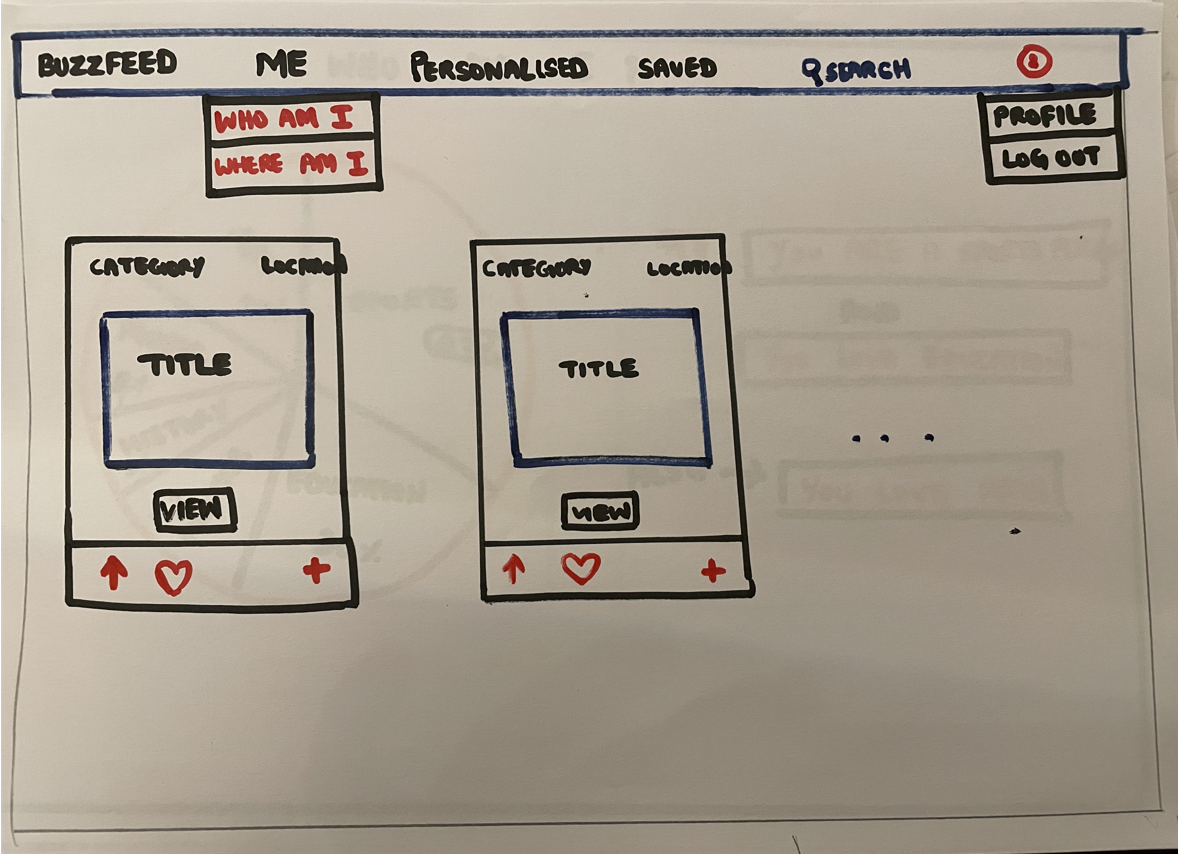 BUZZFEED ME PERSONALISED SAVED SEARCH
WHO AM I
WHERE AM I
PROFILE
LOG OUT
CATEGORY LOCATION
TITLE
VIEW
CATEGORY LOCATION
TITLE
VIEW
...